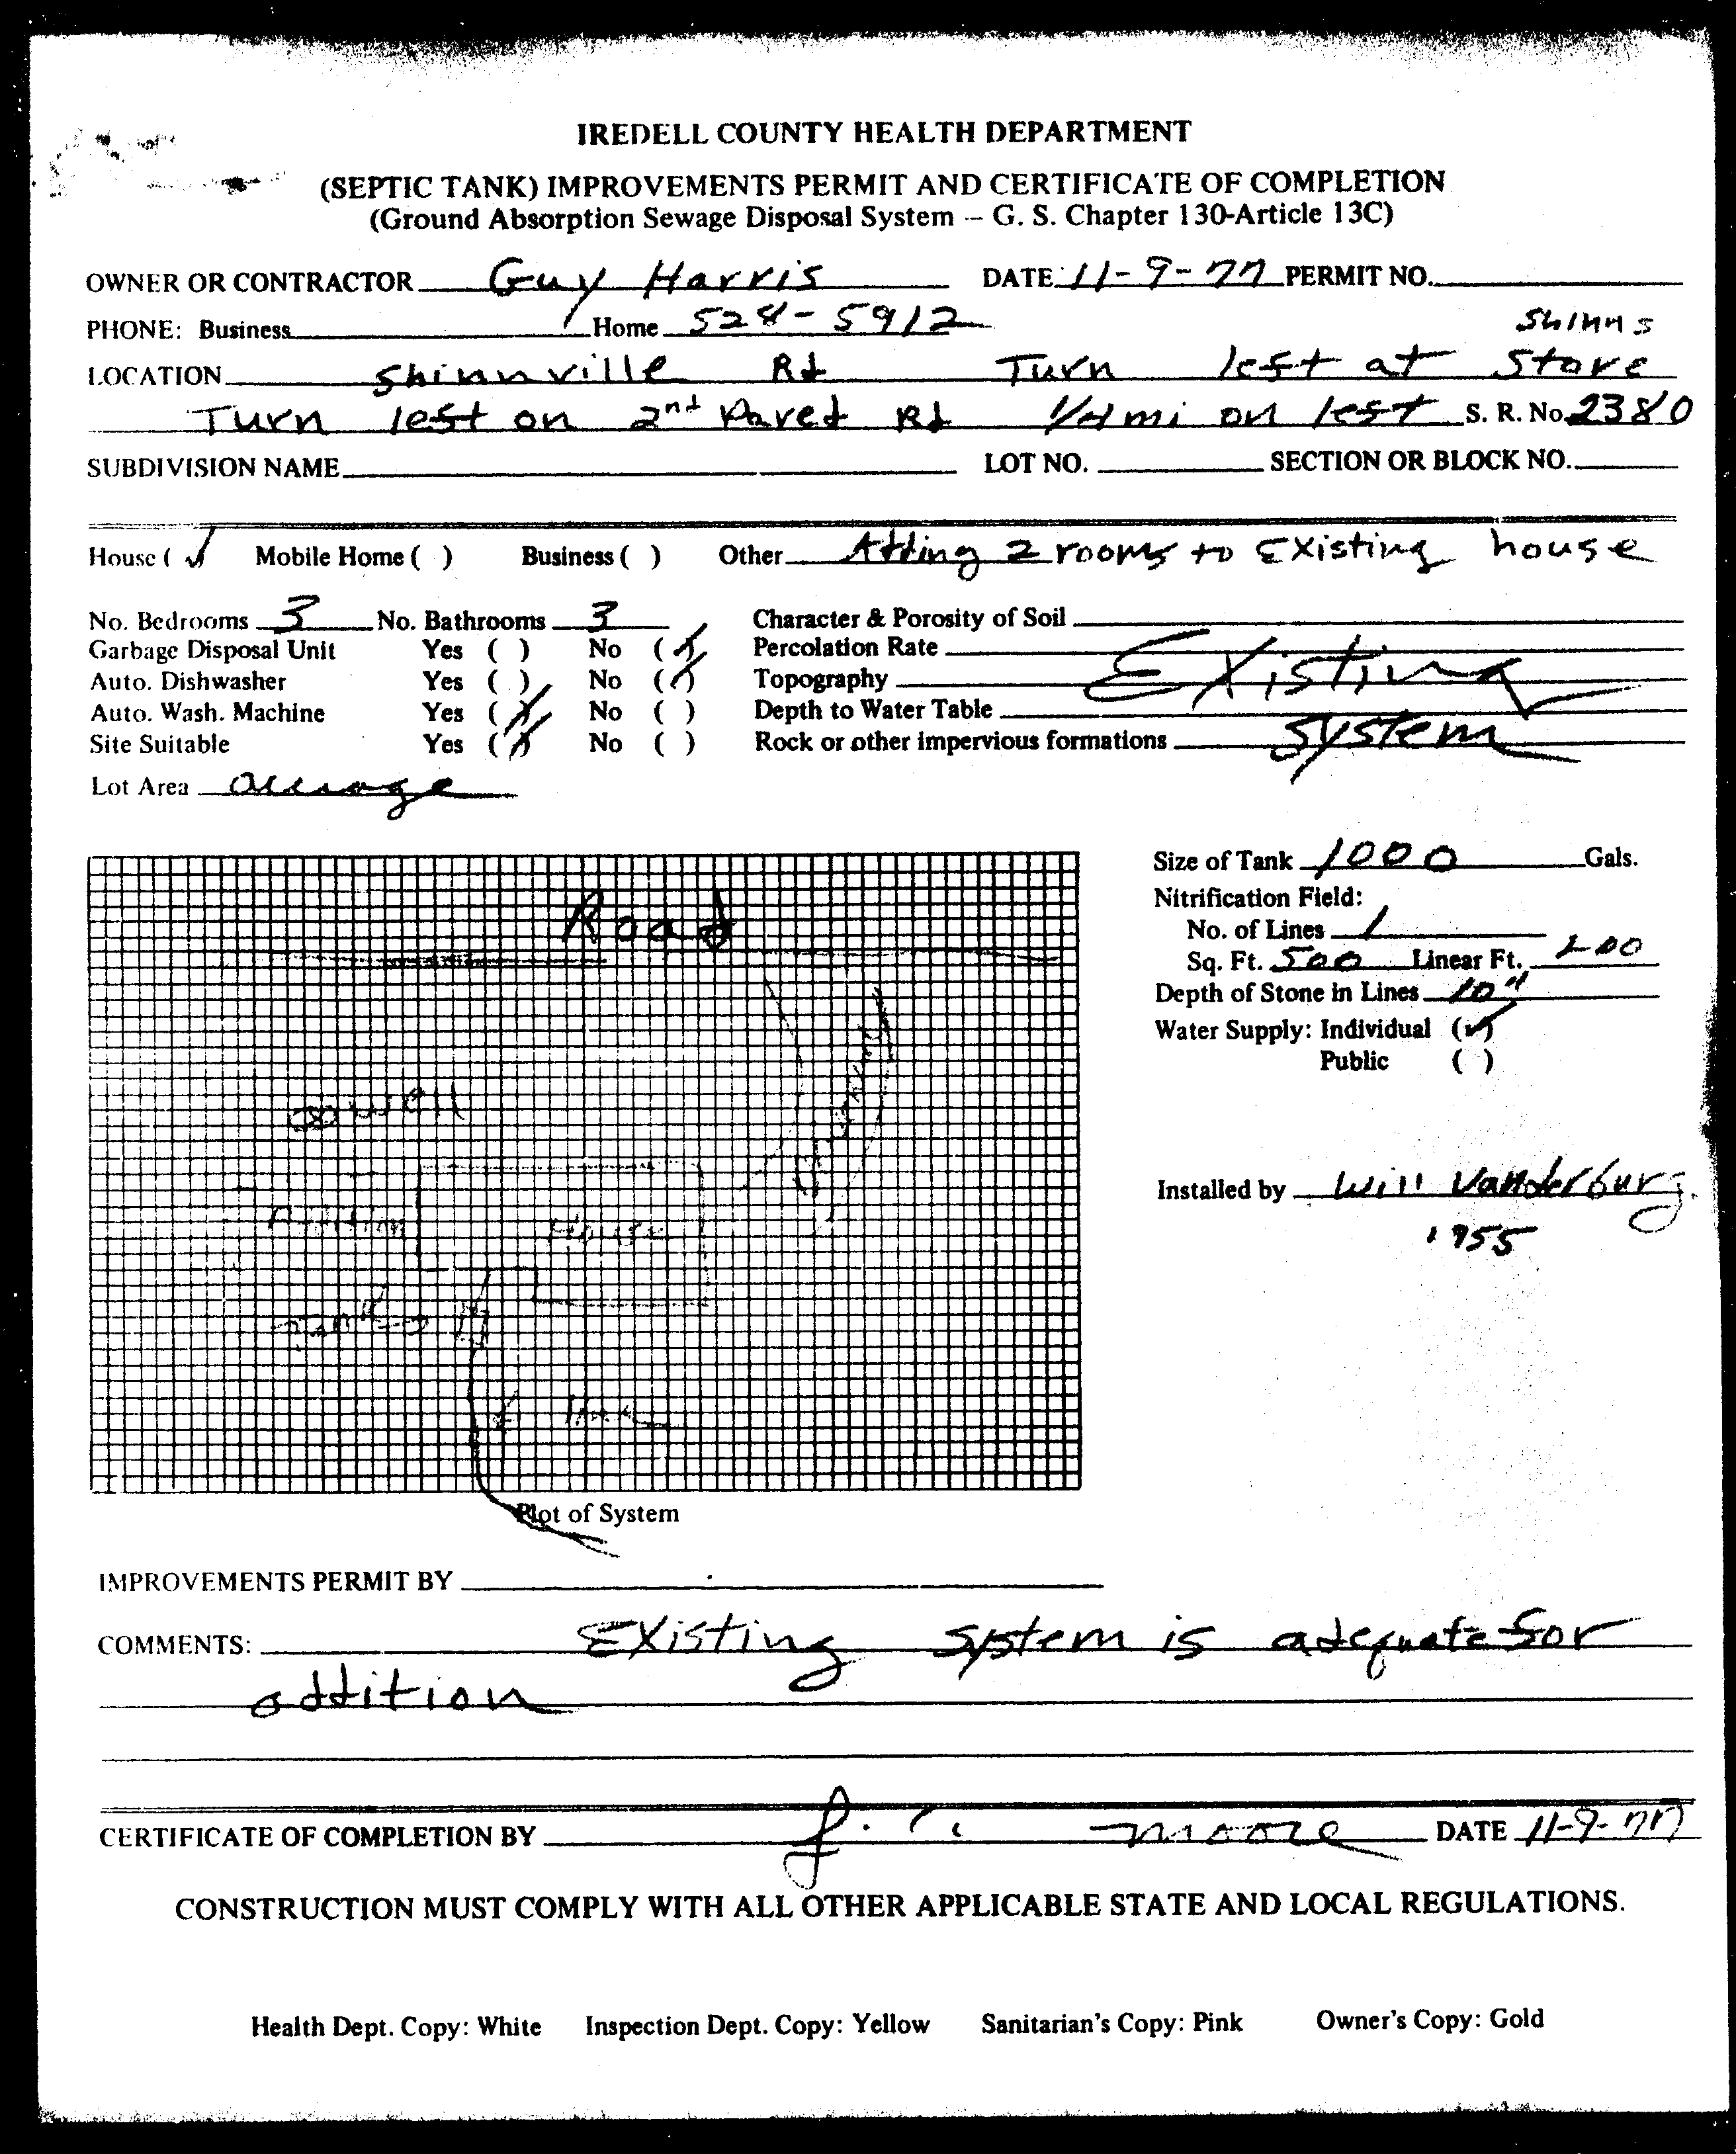 IREDELL COUNTY HEALTH DEPARTMENT
(SEPTIC TANK) IMPROVEMENTS PERMIT AND CERTIFICATE OF COMPLETION
(Ground Absorption Sewage Disposal System -- G. S. Chapter 130-Article 13C)
OWNER OR CONTRACTOR Guy Harris DATE 11-9-77 PERMIT NO.
PHONE: Business Home 528-5912 Shinns
LOCATION Shinnville Rd Turn left at Store
Turn left on 2nd Paved Rd 1/4 mi on left S. R. No. 2380
SUBDIVISION NAME LOT NO. SECTION OR BLOCK NO.
House (✓) Mobile Home ( ) Business ( ) Other Adding 2 rooms to Existing house
No. Bedrooms 3 No. Bathrooms 3 Character & Porosity of Soil
Garbage Disposal Unit Yes ( ) No (✓) Percolation Rate Existing
Auto. Dishwasher Yes ( ) No (✓) Topography
Auto. Wash. Machine Yes (✓) No ( ) Depth to Water Table System
Site Suitable Yes (✓) No ( ) Rock or other impervious formations
Lot Area acreage
Size of Tank 1000 Gals.
Nitrification Field:
No. of Lines 1
Sq. Ft. 500 Linear Ft. 200
Depth of Stone in Lines 10"
Water Supply: Individual (✓)
Public ( )
Installed by Will Vanderburg
1955
Road
well
Addition House
Tank
Plot of System
IMPROVEMENTS PERMIT BY
COMMENTS: Existing system is adequate for
addition
CERTIFICATE OF COMPLETION BY Moore DATE 11-9-77
CONSTRUCTION MUST COMPLY WITH ALL OTHER APPLICABLE STATE AND LOCAL REGULATIONS.
Health Dept. Copy: White Inspection Dept. Copy: Yellow Sanitarian's Copy: Pink Owner's Copy: Gold